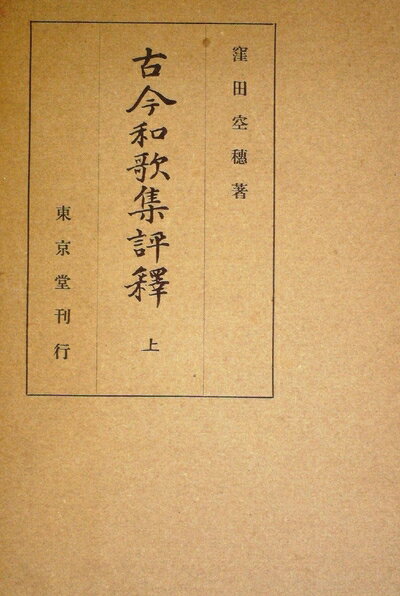 窪田空穂著
古今和歌集評釋 上
東京堂刊行